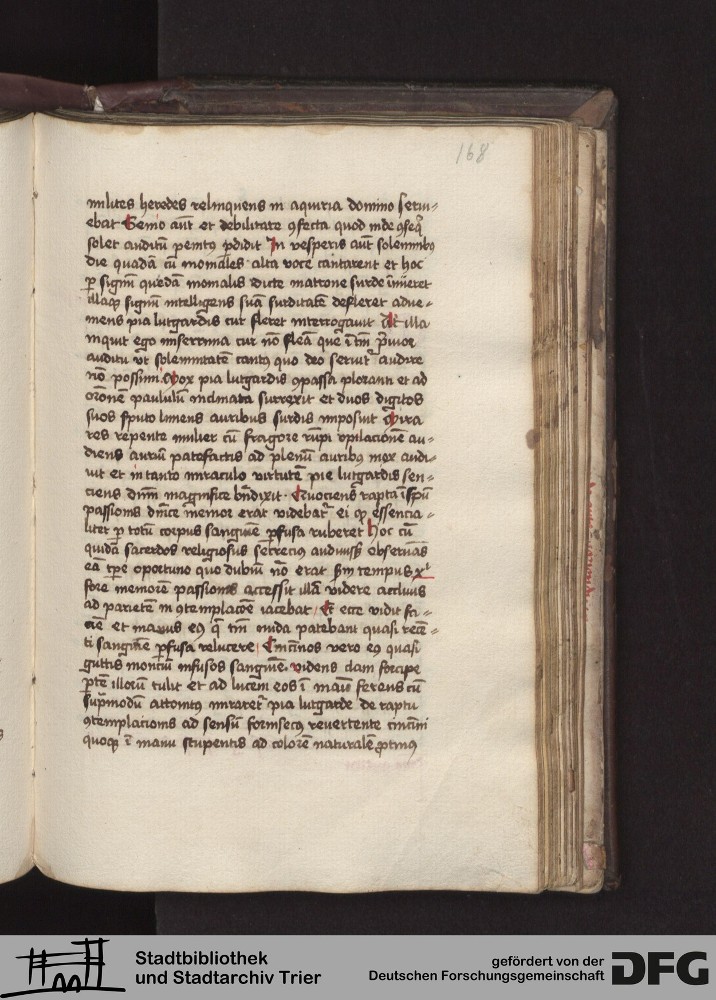 168
milites heredes relinquens in aquiria domino servi-
ebat Senio aūt et debilitate ꝯfecta quod inde ꝯseq̄
solet auditū penitꝰ ꝑdidit In vesperis aūt solemnibꝰ
die quadā cū moniales alta voce cantarent et hoc
ꝑ signū quedā monialis dicte matrone surde īnueret
illaqꝫ signū intelligens suā surditatē defleret adve-
niens pia lutgardis cur fleret interrogavit At illa
inquit ego miserrima cur nō fleā que ī tm̄ pͥuor
auditu vt solemnitatē cantꝰ quo deo seruitͬ audire
nō possim Mox pia lutgardis ꝯpassa ploranti et ad
orōnē paululū inclinata surrexit et duos digitos
suos sputo liniens auribus surdis imposuit Mira
res repente mulier cū fragore rūpi opilacionē au-
diens auriū patefactis ad plenū auribꝰ mox audi-
uit et in tanto miraculo virtutē pie lutgardis sen-
ciens dnm̄ magnifice bn̄dixit Quociens rapta ī spū
passionis dnīce memor erat videbatͬ ei qꝫ essencia-
liter ꝑ totū corpus sanguīe ꝑfusa ruberet Hoc cū
quidā sacerdos religiosus secrecius audiuissꝫ obseruās
eā tꝑe oportuno quo dubiū nō erat scdm tempus xͥ
fore memorē passionis accessit illā videre accliuis
ad parietē in ꝯtemplacōe iacebat Et ecce vidit fa-
ciē et manus eꝰ q̄ tm̄ nuda patebant quasi recē-
ti sanguīe ꝑfusa relucere Cincinos vero eꝰ quasi
guttis noctiū infusos sanguīe videns clam forcipe
ꝑtē illorū tulit et ad lucem eos ī manu ferens cū
supͬmodū attonitꝰ miraretͬ pia lutgarde de raptu
ꝯtemplacionis ad sensū forinsecꝰ revertente cincini
quoqꝫ ī manu stupentis ad colorē naturalē ꝓtinꝰ
Stadtbibliothek
und Stadtarchiv Trier
gefördert von der
Deutschen Forschungsgemeinschaft
DFG